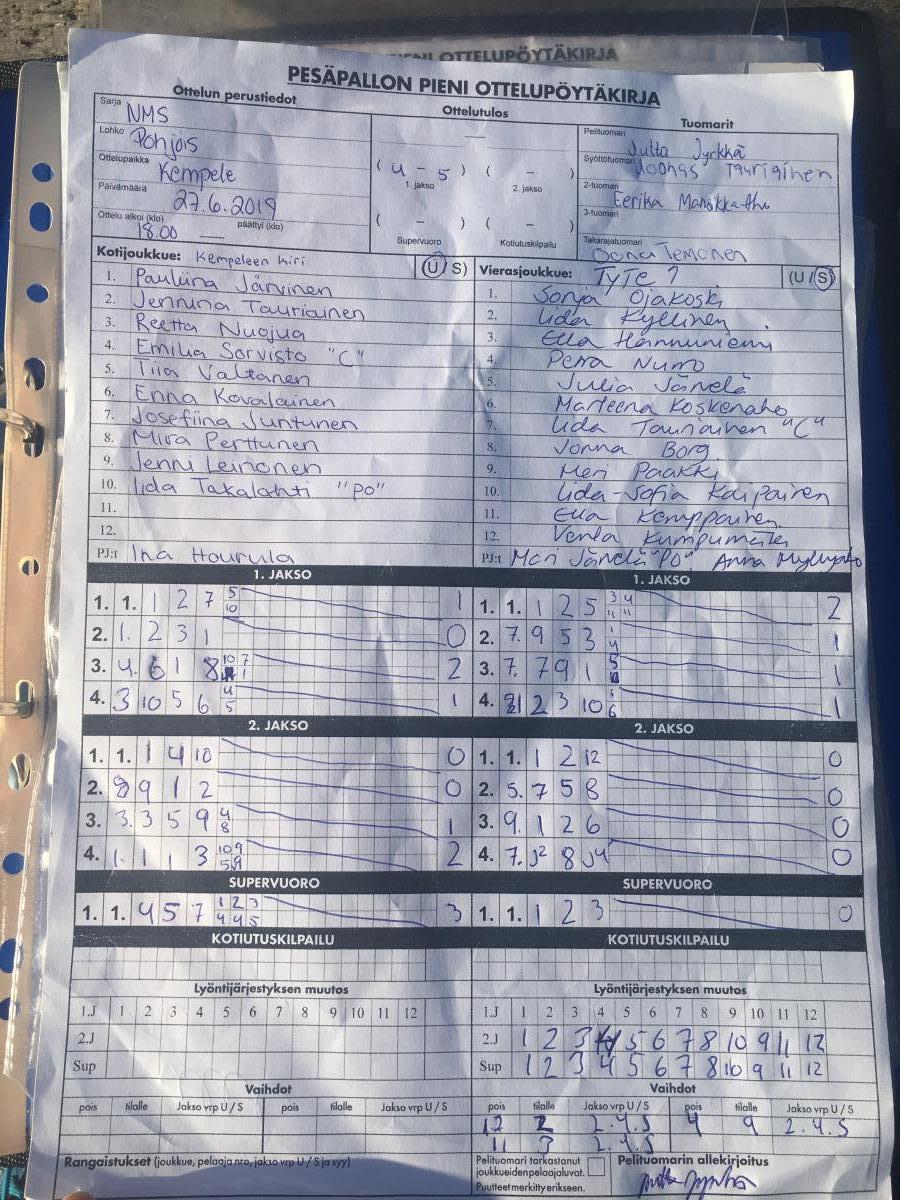 PIENI OTTELUPÖYTÄKIRJA
PESÄPALLON PIENI OTTELUPÖYTÄKIRJA
Ottelun perustiedot Ottelutulos Tuomarit
Sarja NMS
Lohko Pohjois
Ottelupaikka Kempele
Päivämäärä 27.6.2019
Ottelu alkoi (klo) 18.00 päättyi (klo)
( 4 - 5 ) ( - )
1. jakso 2. jakso
( - ) ( - )
Supervuoro Kotiutuskilpailu
Pelituomari Jutta Jyrkkä
Syöttötuomari Joonas Tauriainen
2-tuomari Eerika
3-tuomari
Takarajatuomari Oona
Kotijoukkue: Kempeleen Kiri (U/S)
1. Pauliina Järvinen
2. Jenniina Tauriainen
3. Reetta Nuojua
4. Emilia Sorvisto "C"
5. Tiia Valtanen
6. Enna Kovalainen
7. Josefiina Juntunen
8. Mira Perttunen
9. Jenni Leinonen
10. Iida Takalahti "PO"
11.
12.
PJ:t Ina Hourula
Vierasjoukkue: TyTe (U/S)
1. Sonja Ojakoski
2. Iida Kyllinen
3. Ella Hannuniemi
4. Petra Numo
5. Julia Järvelä
6. Marleena Koskenaho
7. Iida Tauriainen "C"
8. Jonna Borg
9. Meri Paakki
10. Iida-Sofia Karpainen
11. Ella Kemppainen
12. Venla Kumpumäki
PJ:t Mari Järvelä "PO", Anna
1. JAKSO 1. JAKSO
1. 1. 1 2 7 5 10 1
2. 1. 2 3 1 0
3. 4. 6 1 8 10 7 1 2
4. 3 10 5 6 4 5 1
1. 1. 1 2 5 3 4 11 11 2
2. 7. 9 5 3 1 4 1
3. 7. 7 9 1 5 1
4. 2 3 10 1 6 1
2. JAKSO 2. JAKSO
1. 1. 1 4 10 0
2. 8 9 1 2 0
3. 3. 3 5 9 4 8 1
4. 1. 1 1 3 10 9 5 9 2
1. 1. 1 2 12 0
2. 5. 7 5 8 0
3. 9. 1 2 6 0
4. 7. J2 8 J4 0
SUPERVUORO SUPERVUORO
1. 1. 4 5 7 1 2 3 4 4 5 3
1. 1. 1 2 3 0
KOTIUTUSKILPAILU KOTIUTUSKILPAILU
Lyöntijärjestyksen muutos Lyöntijärjestyksen muutos
1.J 1 2 3 4 5 6 7 8 9 10 11 12
2.J
Sup
1.J 1 2 3 4 5 6 7 8 9 10 11 12
2.J 1 2 3 4 5 6 7 8 10 9 11 12
Sup 1 2 3 4 5 6 7 8 10 9 11 12
Vaihdot Vaihdot
pois tilalle Jakso vrp U / S pois tilalle Jakso vrp U / S
pois tilalle Jakso vrp U / S pois tilalle Jakso vrp U / S
12 2 2.4.S 4 9 2.4.S
11 3 2.4.S
Rangaistukset (joukkue, pelaaja nro, jakso vrp U / S ja syy)
Pelituomari tarkastanut
joukkueiden pelaajaluvat.
Puutteet merkitty erikseen.
Pelituomarin allekirjoitus
Jutta Jyrkkä